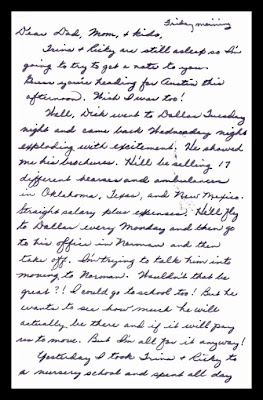 Friday morning
Dear Dad, Mom, & kids,
Trina & Ricky are still asleep so I'm
going to try to get a note to you.
Guess you're heading for Austin this
afternoon. Wish I was too!
Well, Dick went to Dallas Tuesday
night and came back Wednesday night
exploding with excitement. He showed
me his brochures. He'll be selling 17
different hearses and ambulances
in Oklahoma, Texas, and New Mexico.
Straight salary plus expenses. He'll fly
to Dallas every Monday and then go
to his office in Norman and then
take off. I'm trying to talk him into
moving to Norman. Wouldn't that be
great?! I could go to school too! But he
wants to see how much he will
actually be there and if it will pay
us to move. But I'm all for it anyway!
Yesterday I took Trina & Ricky to
a nursery school and spent all day